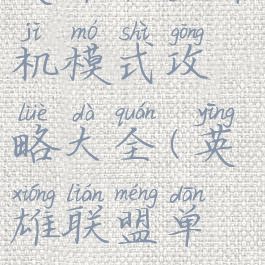 jī mó shì gōng
机模式攻
lüè dà quán yīng
略大全(英
xióng lián méng dān
雄联盟单